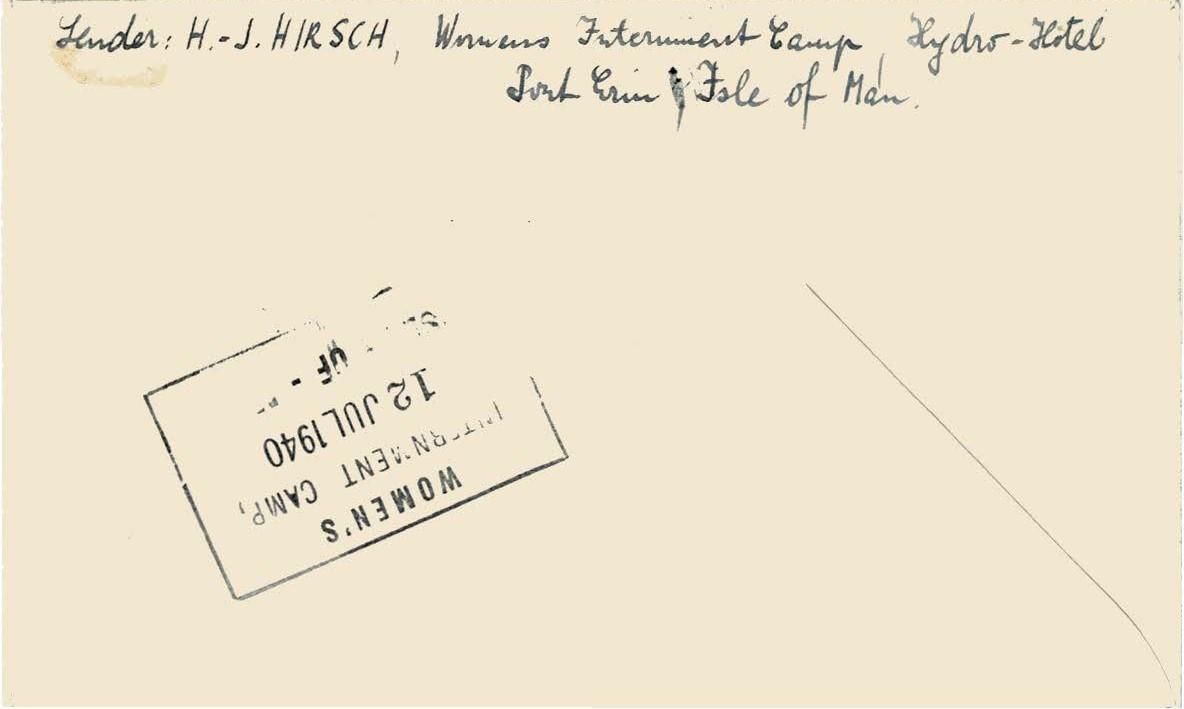 Sender: H.-J. HIRSCH, Womens Internment Camp, Hydro-Hotel
Port Erin, Isle of Man.
WOMEN'S
INTERNMENT CAMP,
12 JUL 1940
OF -